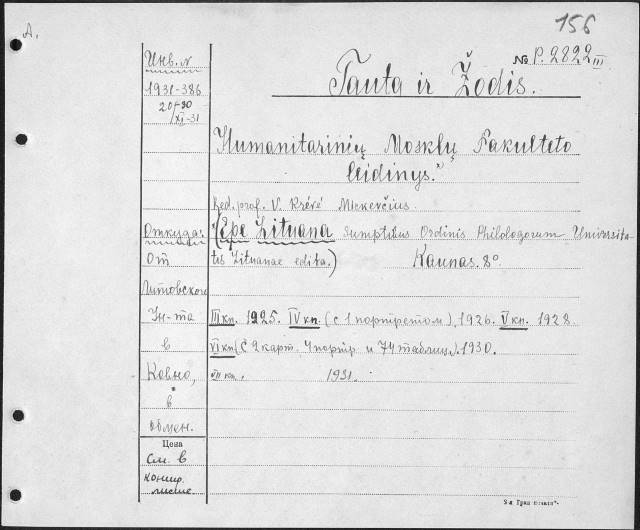 156
A.
№ P. 2822 III
Инв. №
1931-386
20/XI-31
Tauta ir Žodis.
Humanitarinių Mosklų Fakulteto
leidinys.*)
Red. prof. V. Krėvė Mickevičius.
Откуда:
*(Epe Lituana Sumptibus Ordinis Philologorum Universita-
От
tis Lituanae edita.) Kaunas. 8°.
Литовского
Ин-та
III кн. 1925. IV кн. (с 1 портретом), 1926. V кн. 1928.
в
VI кн (с 2 карт. 4 портр и 74 таблиц.). 1930.
Ковно,
VII кн. 1931.
в
обмен.
Цена
См. в
концe